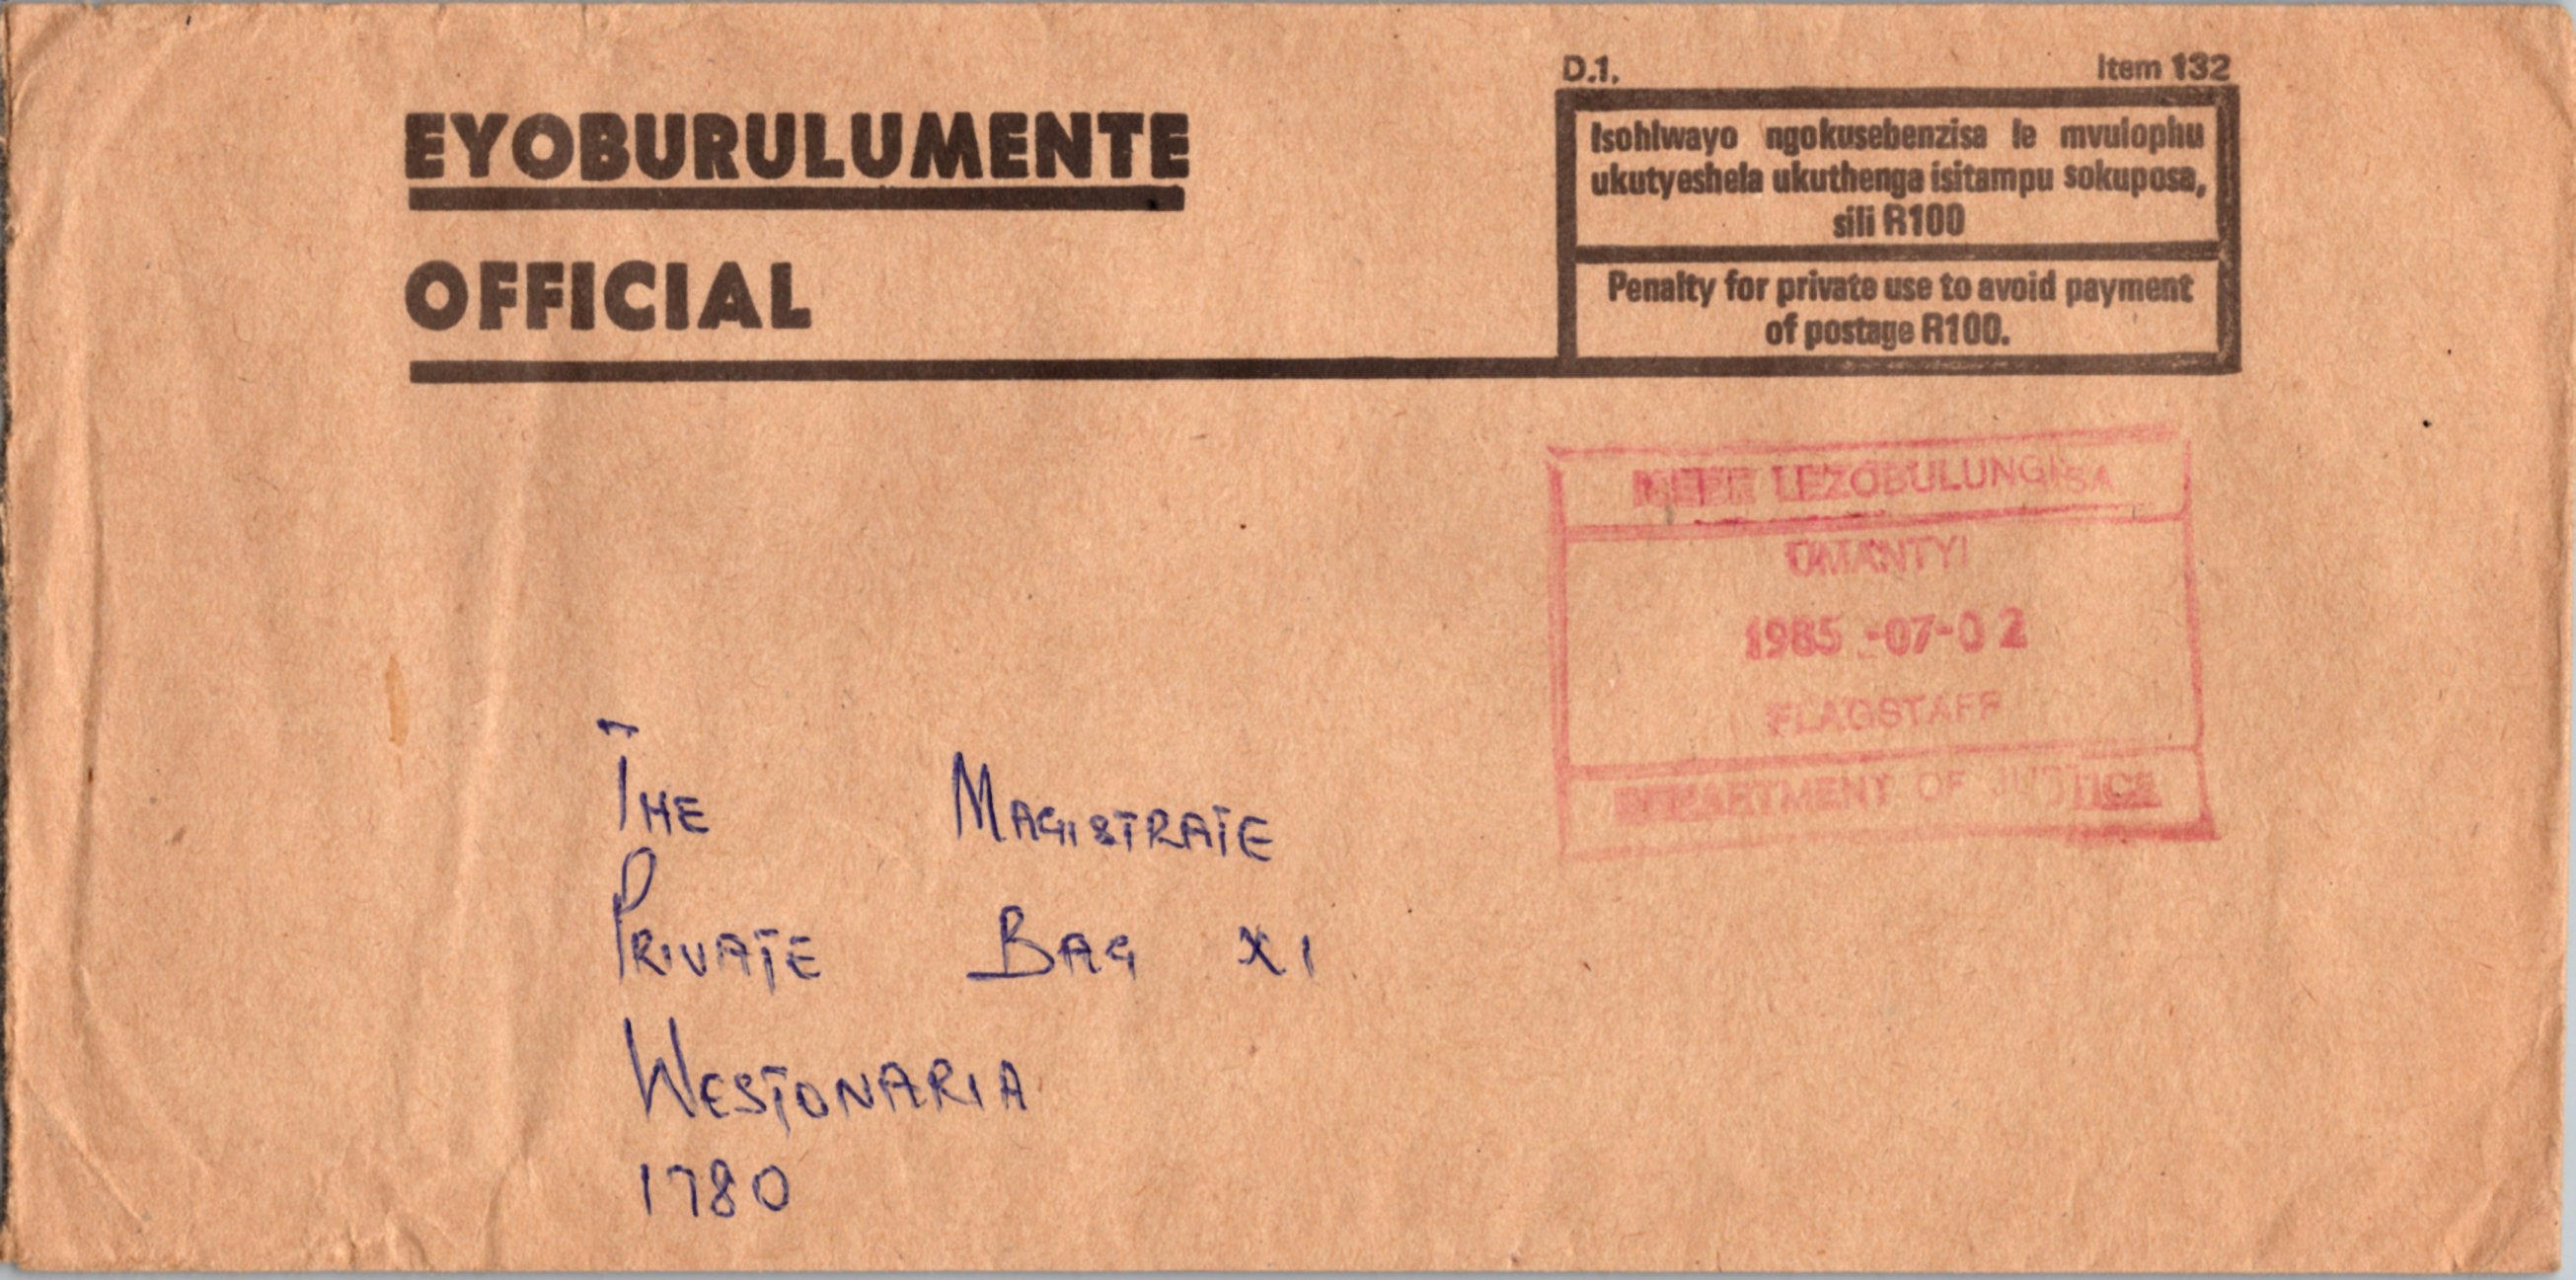 D.1. Item 132
EYOBURULUMENTE
OFFICIAL
Isohlwayo ngokusebenzisa le mvulophu
ukutyeshela ukuthenga isitampu sokuposa,
sili R100
Penalty for private use to avoid payment
of postage R100.
LEZOBULUNGISA
UMANTYI
1985-07-02
FLAGSTAFF
DEPARTMENT OF JUSTICE
THE MAGISTRATE
PRIVATE BAG X1
WESTONARIA
1780